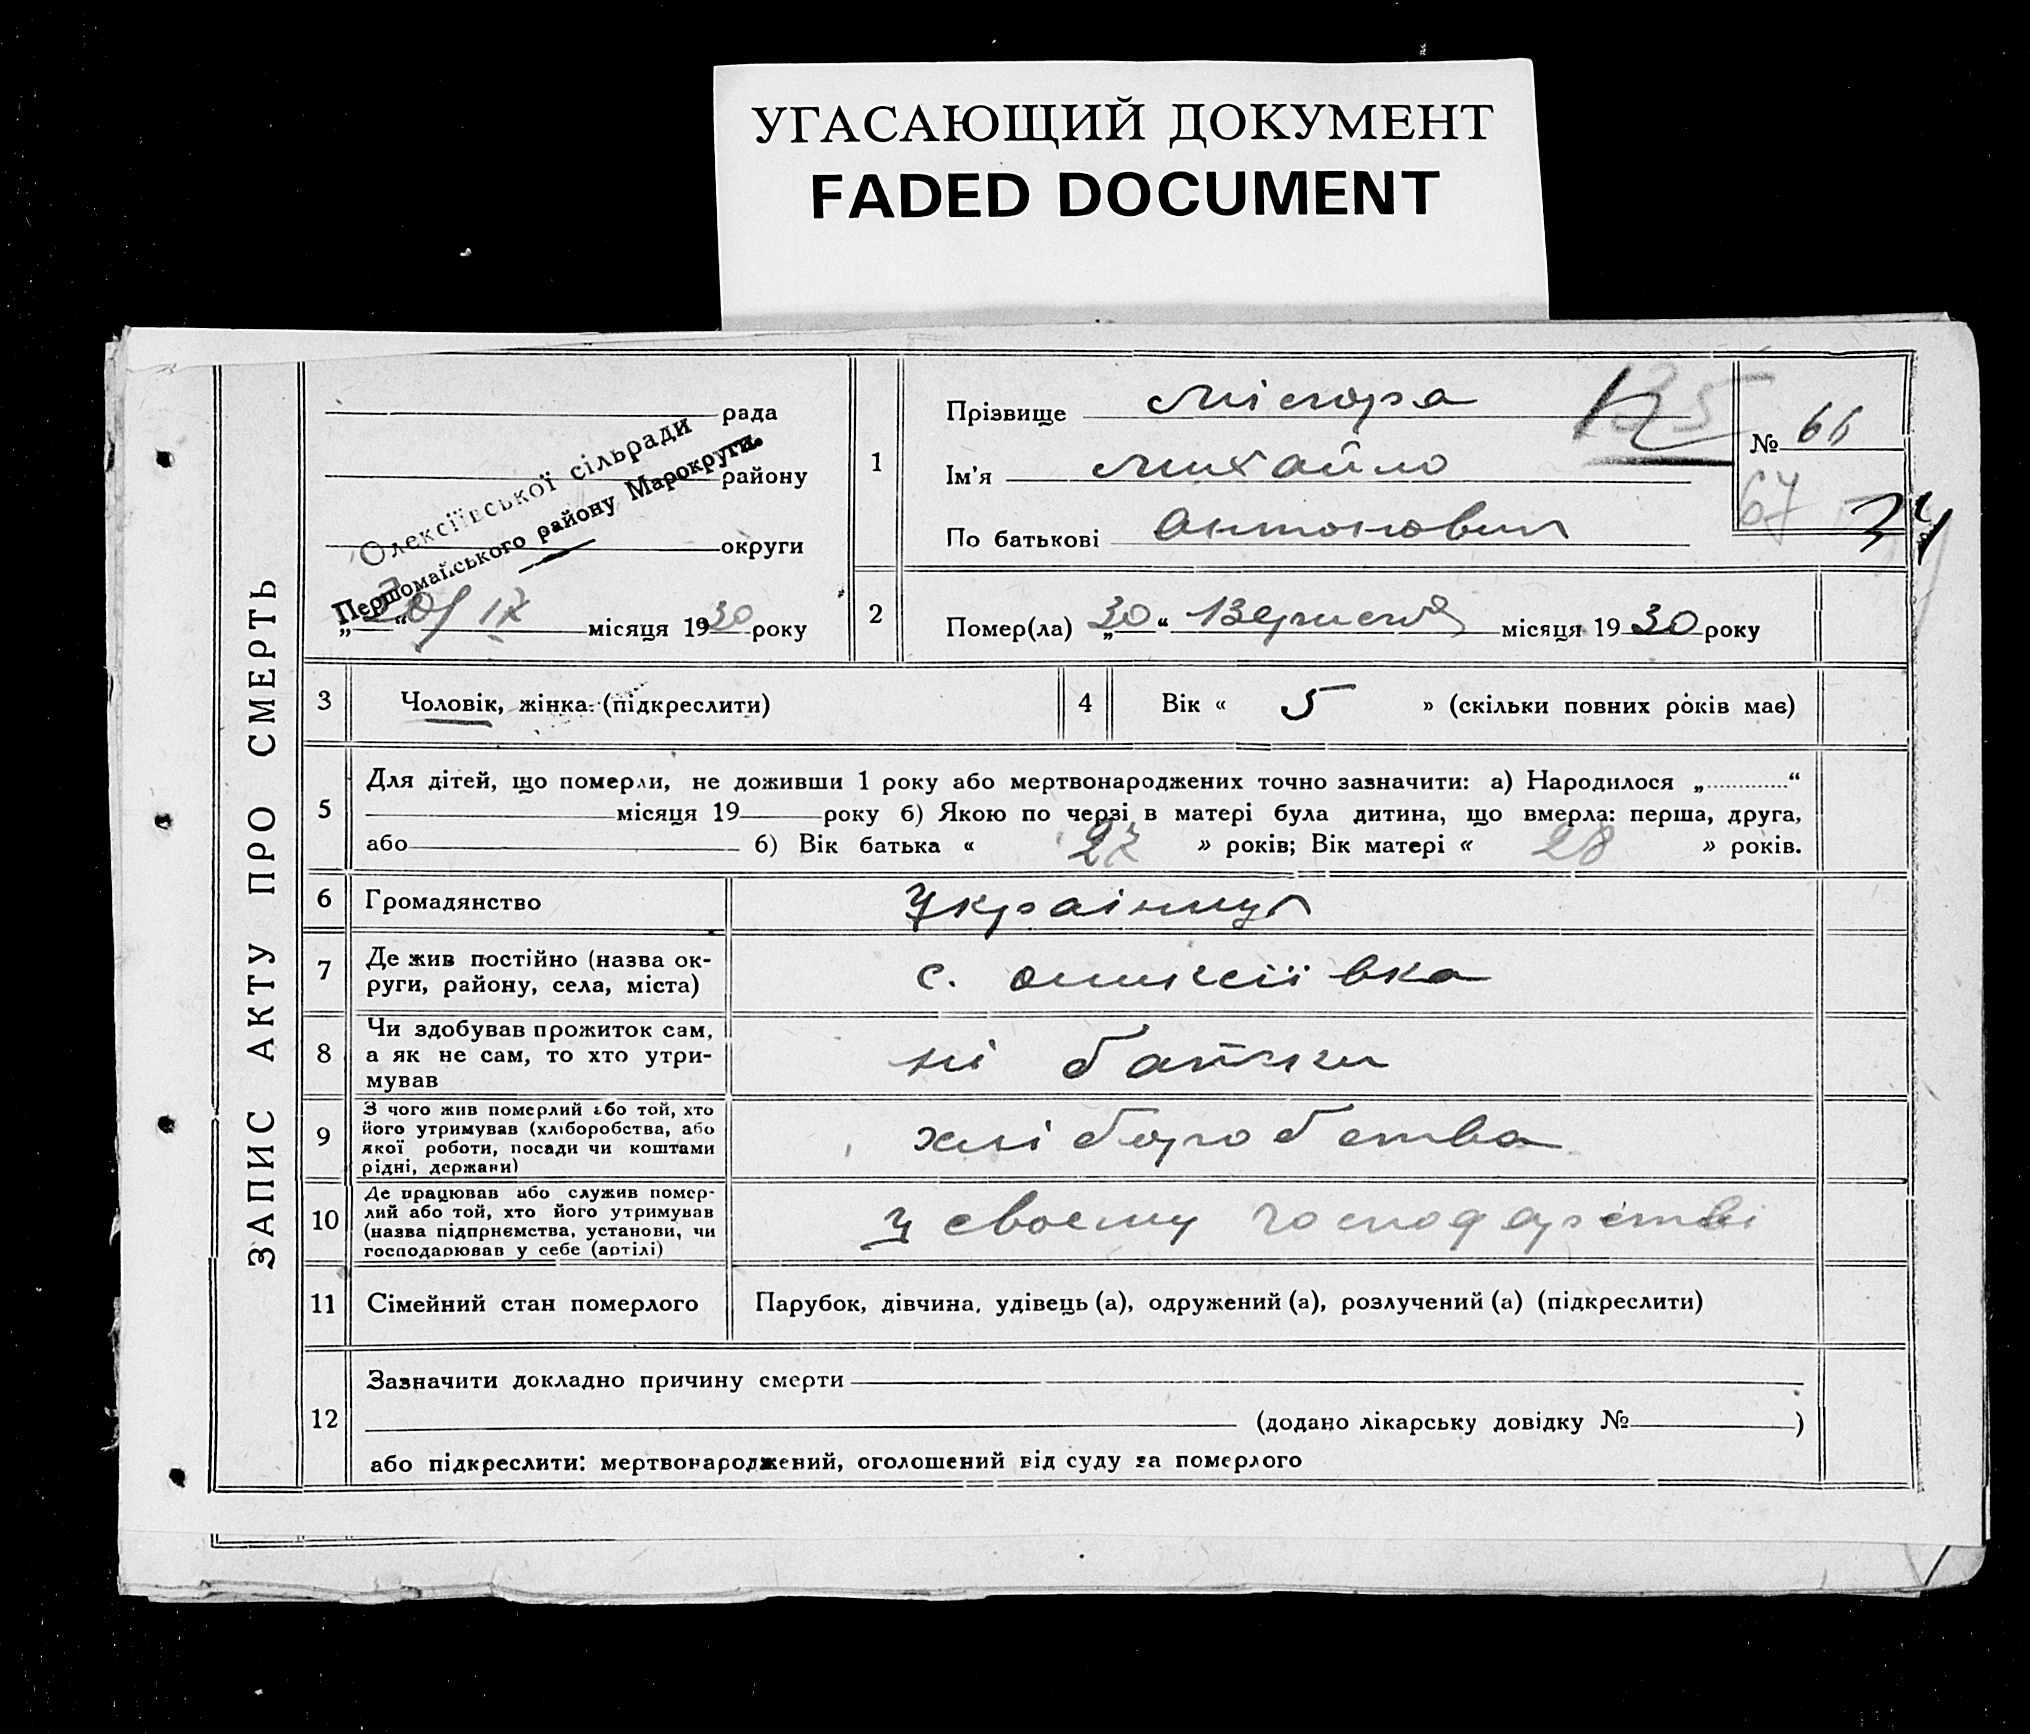 УГАСАЮЩИЙ ДОКУМЕНТ
FADED DOCUMENT
ЗАПИС АКТУ ПРО СМЕРТЬ
рада
району
округи
Олексіївської сільради
Першомайського району Марокруги.
„ “ місяця 1930 року
1
Прізвище
Ім'я Михайло
По батькові Антонович
№ 66
67
34
2
Помер(ла) „30“ Вересня місяця 1930 року
3
Чоловік, жінка (підкреслити)
4
Вік « 5 » (скільки повних років має)
5
Для дітей, що померли, не доживши 1 року або мертвонароджених точно зазначити: а) Народилося „ “
місяця 19 року б) Якою по черзі в матері була дитина, що вмерла: перша, друга,
або б) Вік батька « 27 » років; Вік матері « 28 » років.
6
Громадянство
українця
7
Де жив постійно (назва ок-
руги, району, села, міста)
с. Олексіївка
8
Чи здобував прожиток сам,
а як не сам, то хто утри-
мував
ні батьки
9
З чого жив померлий або той, хто
його утримував (хліборобства, або
якої роботи, посади чи коштами
рідні, держави)
хліборобства
10
Де працював або служив помер-
лий або той, хто його утримував
(назва підприємства, установи, чи
господарював у себе (артілі)
у своєму господарстві
11
Сімейний стан померлого
Парубок, дівчина, удівець (а), одружений (а), розлучений (а) (підкреслити)
12
Зазначити докладно причину смерти
(додано лікарську довідку № )
або підкреслити: мертвонароджений, оголошений від суду за померлого